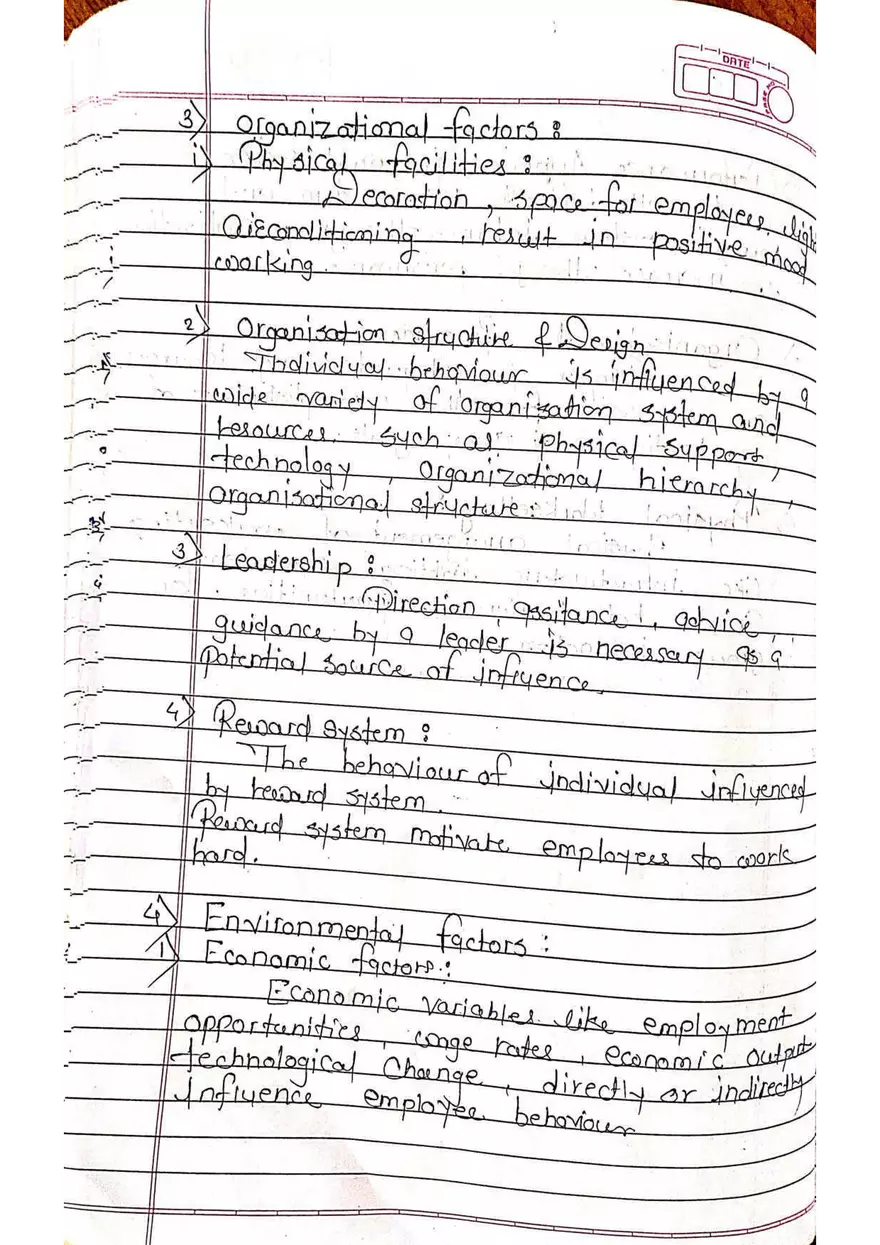 DATE
3) Organizational factors:
i) Physical facilities:
Decoration, space for employees,
Airconditioning, result in positive mood
working.
2) Organisation structure & Design
Individual behaviour is influenced by a
wide variety of organization system and
resources such as physical support,
technology, organizational hierarchy,
organisational structure.
3) Leadership:
Direction, assitance, advice,
guidance by a leader is necessary as a
potential source of influence.
4) Reward system:
The behaviour of individual influenced
by reward system.
Reward system motivate employees to work
hard.
4) Environmental factors:
1) Economic factors:
Economic variables like employment
opportunities, wage rates, economic output
technological change, directly or indirectly
influence employee behaviour